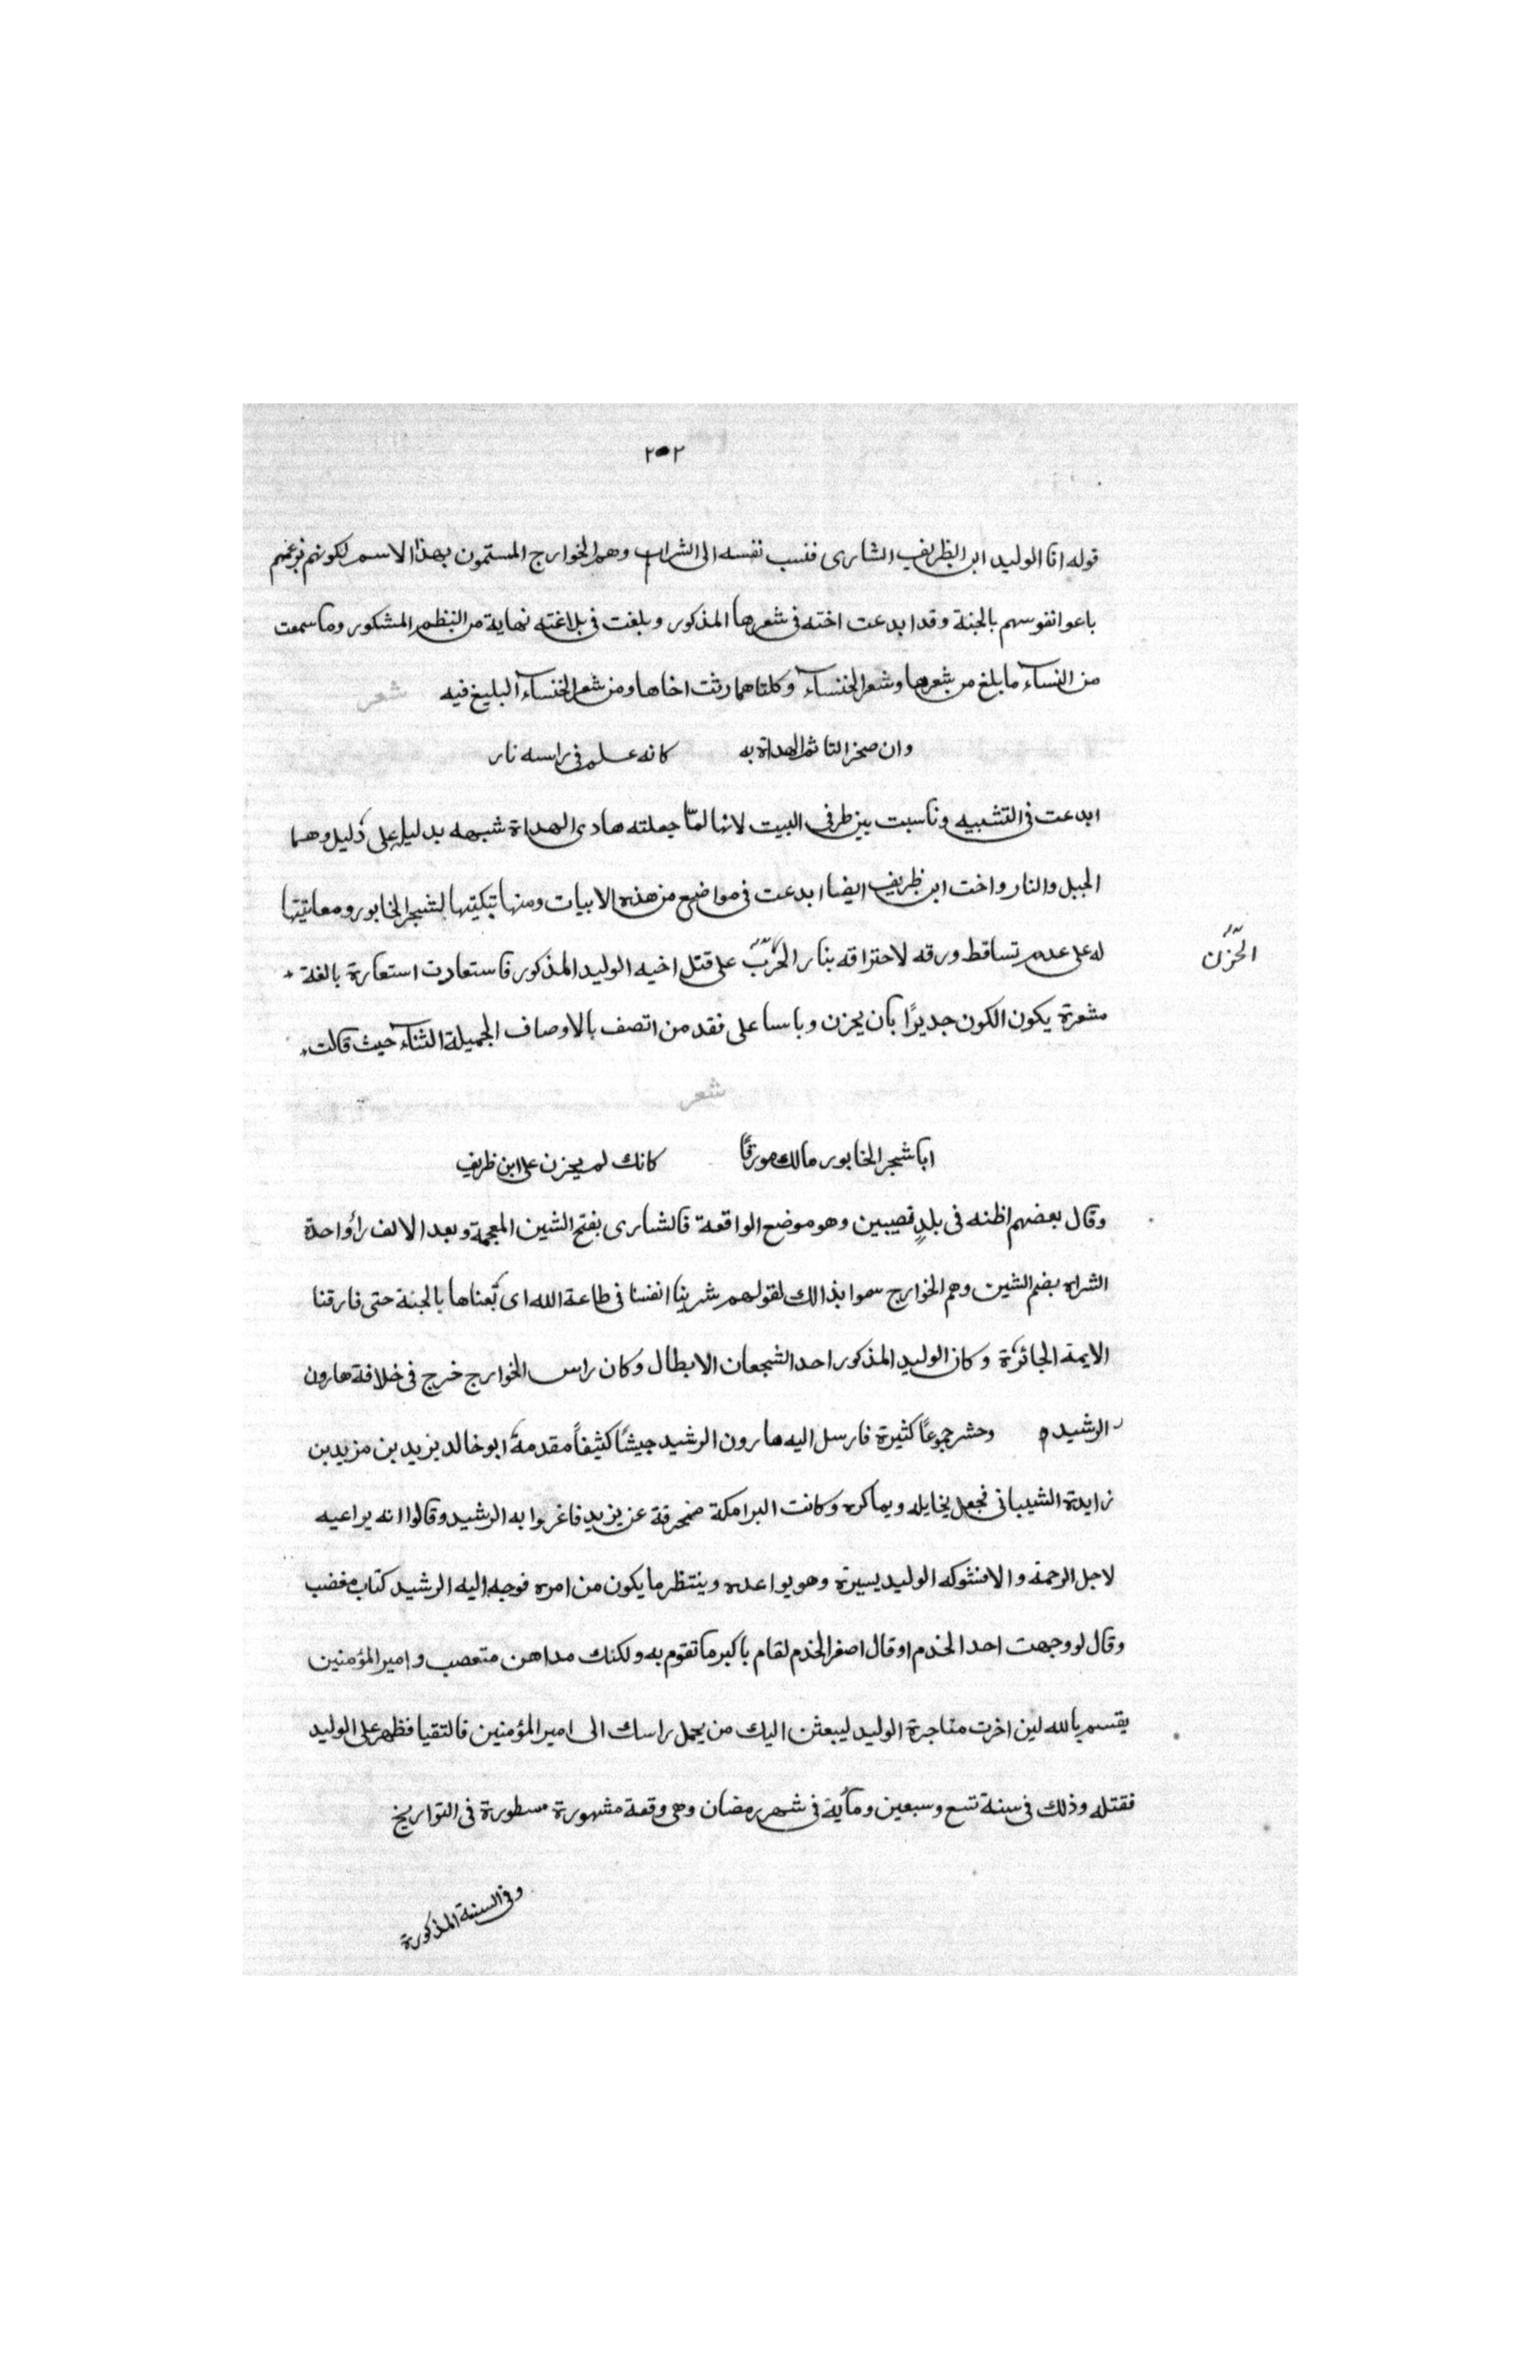 ٢٠٢
قوله انا الوليد ابن الظريف الشارى فنسب نفسه الى الشراب وهم الخوارج المستمون بهذا الاسم لكونهم بزعمهم
باعوا نفوسهم بالجنة وقد ابدعت اخته فى شعرها المذكور وبلغت فى بلاغته نهاية من النظم المشكور وما سمعت
من النساء ما بلغ من شعرها وشعر الخنساء وكلتاهما رثت اخاها ومن شعر الخنساء البليغ فيه شعر
وان صخر التاتم الهداة به كانه علم فى راسه نار
ابدعت فى التشبيه وناسبت بين طرفى البيت لانها لمّا جعلته هادى الهداة شبهه بدليل على دليل وهما
الجبل والنار واخت ابن ظريف ايضا ابدعت فى مواضع من هذه الابيات ومنها تبكيتها لشجر الخابور ومعاتبتها
له على عدم تساقط ورقه لاحتراقه بنار الحرب على قتل اخيه الوليد المذكور فاستعادت استعارة بالغة
الحزن
مشعرة يكون الكون جديرًا بان يحزن وباسا على فقد من اتصف بالاوصاف الجميلة الثناء حيث قالت
شعر
ايا شجر الخابور مالك مورقًا كانك لم يحزن على ابن ظريف
وقال بعضهم اظنه فى بلدٍ نصيبين وهو موضع الواقعة فالشارى بفتح الشين المعجمة وبعد الالف رأ واحدة
الشراه بضم الشين وهم الخوارج سموا بذالك لقولهم شرينا انفسنا فى طاعة الله اى بعناها بالجنة حتى فارقنا
الايمة الجائرة وكان الوليد المذكور احد الشجعان الابطال وكان راس الخوارج خرج فى خلافة هارون
الرشيد وحشر جموعًا كثيرة فارسل اليه هارون الرشيد جيشًا كثيفاً مقدمة ابو خالد يزيد بن مزيد بن
زايدة الشيبانى فجعل يخايله ويماكره وكانت البرامكة منحرفة عن يزيد فاغروا به الرشيد وقالوا انه يراعيه
لاجل الرحمة والا فشوكه الوليد يسيرة وهو يواعده وينتظر ما يكون من امره فوجه اليه الرشيد كتاب مغضب
وقال لو وجهت احد الخدم او قال اصغر الخدم لقام باكبر ما تقوم به ولكنك مداهن متعصب وامير المؤمنين
يقسم بالله لين اخرت مناجرة الوليد ليبعثن اليك من يحمل راسك الى امير المؤمنين فالتقيا فظهر على الوليد
فقتله وذلك فى سنة تسع وسبعين ومأية فى شهر رمضان وهى وقعة مشهورة مسطورة فى التواريخ
وفى السنة المذكورة